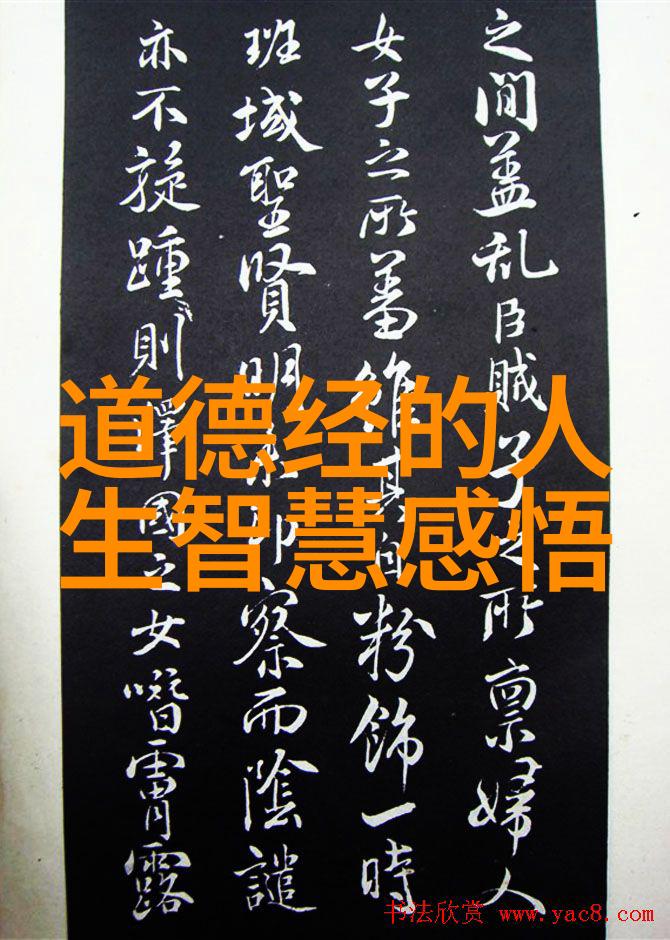 之間盖乱臣贼子之所禀婦人
女子之所蓄雖其自粉飾一時
班域聖賢明察而陰譴
亦不旋踵則譯國之女霄露
道德经的人
生智慧感悟
书法欣赏 www.yac8.com